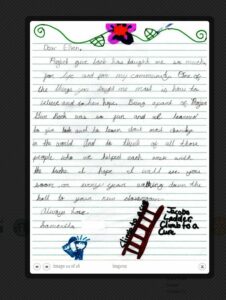 Dear Ellen,
Project give back has taught me so much
for life and for my community. One of
the things you taught me most is how to
believe and to have hope. Being apart of Project
Give Back was so fun and I learned
to give back and to learn about most charitys
in the world. And to think of all those
people who we helped each week with
the books. I hope I will see you
soon or every year walking down the
hall to your new classroom.
Always love
Samantha
Climb to a Cure
Jacobs
Ladder
Climb to a
Cure